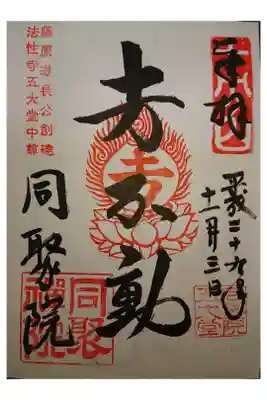 奉拝
平成二十九年
十一月三日
藤原道長公創建
法性寺五大堂中尊
𡈽不動
同聚院
同聚
禅院